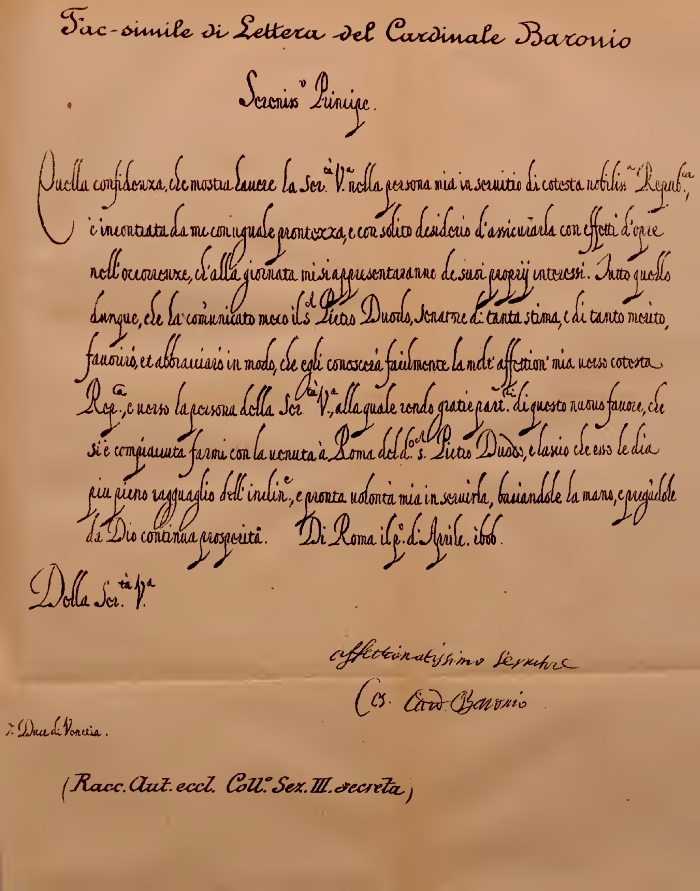 Fac-simile di Lettera del Cardinale Baronio
Sereniss.º Principe.
Quella confidenza, che mostra havere la Ser.tà V.ª nella persona mia in servitio di cotesta nobiliss.ª Repub.ca,
è incontrata da me con iguale prontezza, e con solito desiderio d'assicurarla con effetti d'opre
nell'occorrenze, ch'alla giornata mi si appresentaranno de suoi proprij interessi. Tutto quello
dunque, che ha comunicato meco il s.r Pietro Duodo, senatore di tanta stima, e di tanto merito,
favorirò, et abbracciarò in modo, che egli conoscerà facilmente la molt'affettion' mia verso cotesta
Rep.ca, e verso la persona della Ser.tà V.ª, alla quale rendo gratie part.ri di questo nuovo favore, che
si è compiaciuta farmi con la venuta à Roma del d.º s.r Pietro Duodo, e lascio che esso le dia
piu pieno ragguaglio dell'inclin.e, e pronta volontà mia in servirla, baciandole la mano, e pregãdole
da Dio continua prosperità. Di Roma il p.º di Aprile. 1606.
Della Ser.tà V.ª
affettionatissimo servitore
Ces. Card. Baronio
Duce di Venetia.
(Racc. Aut. eccl. Coll.e Sez. III. secreta)